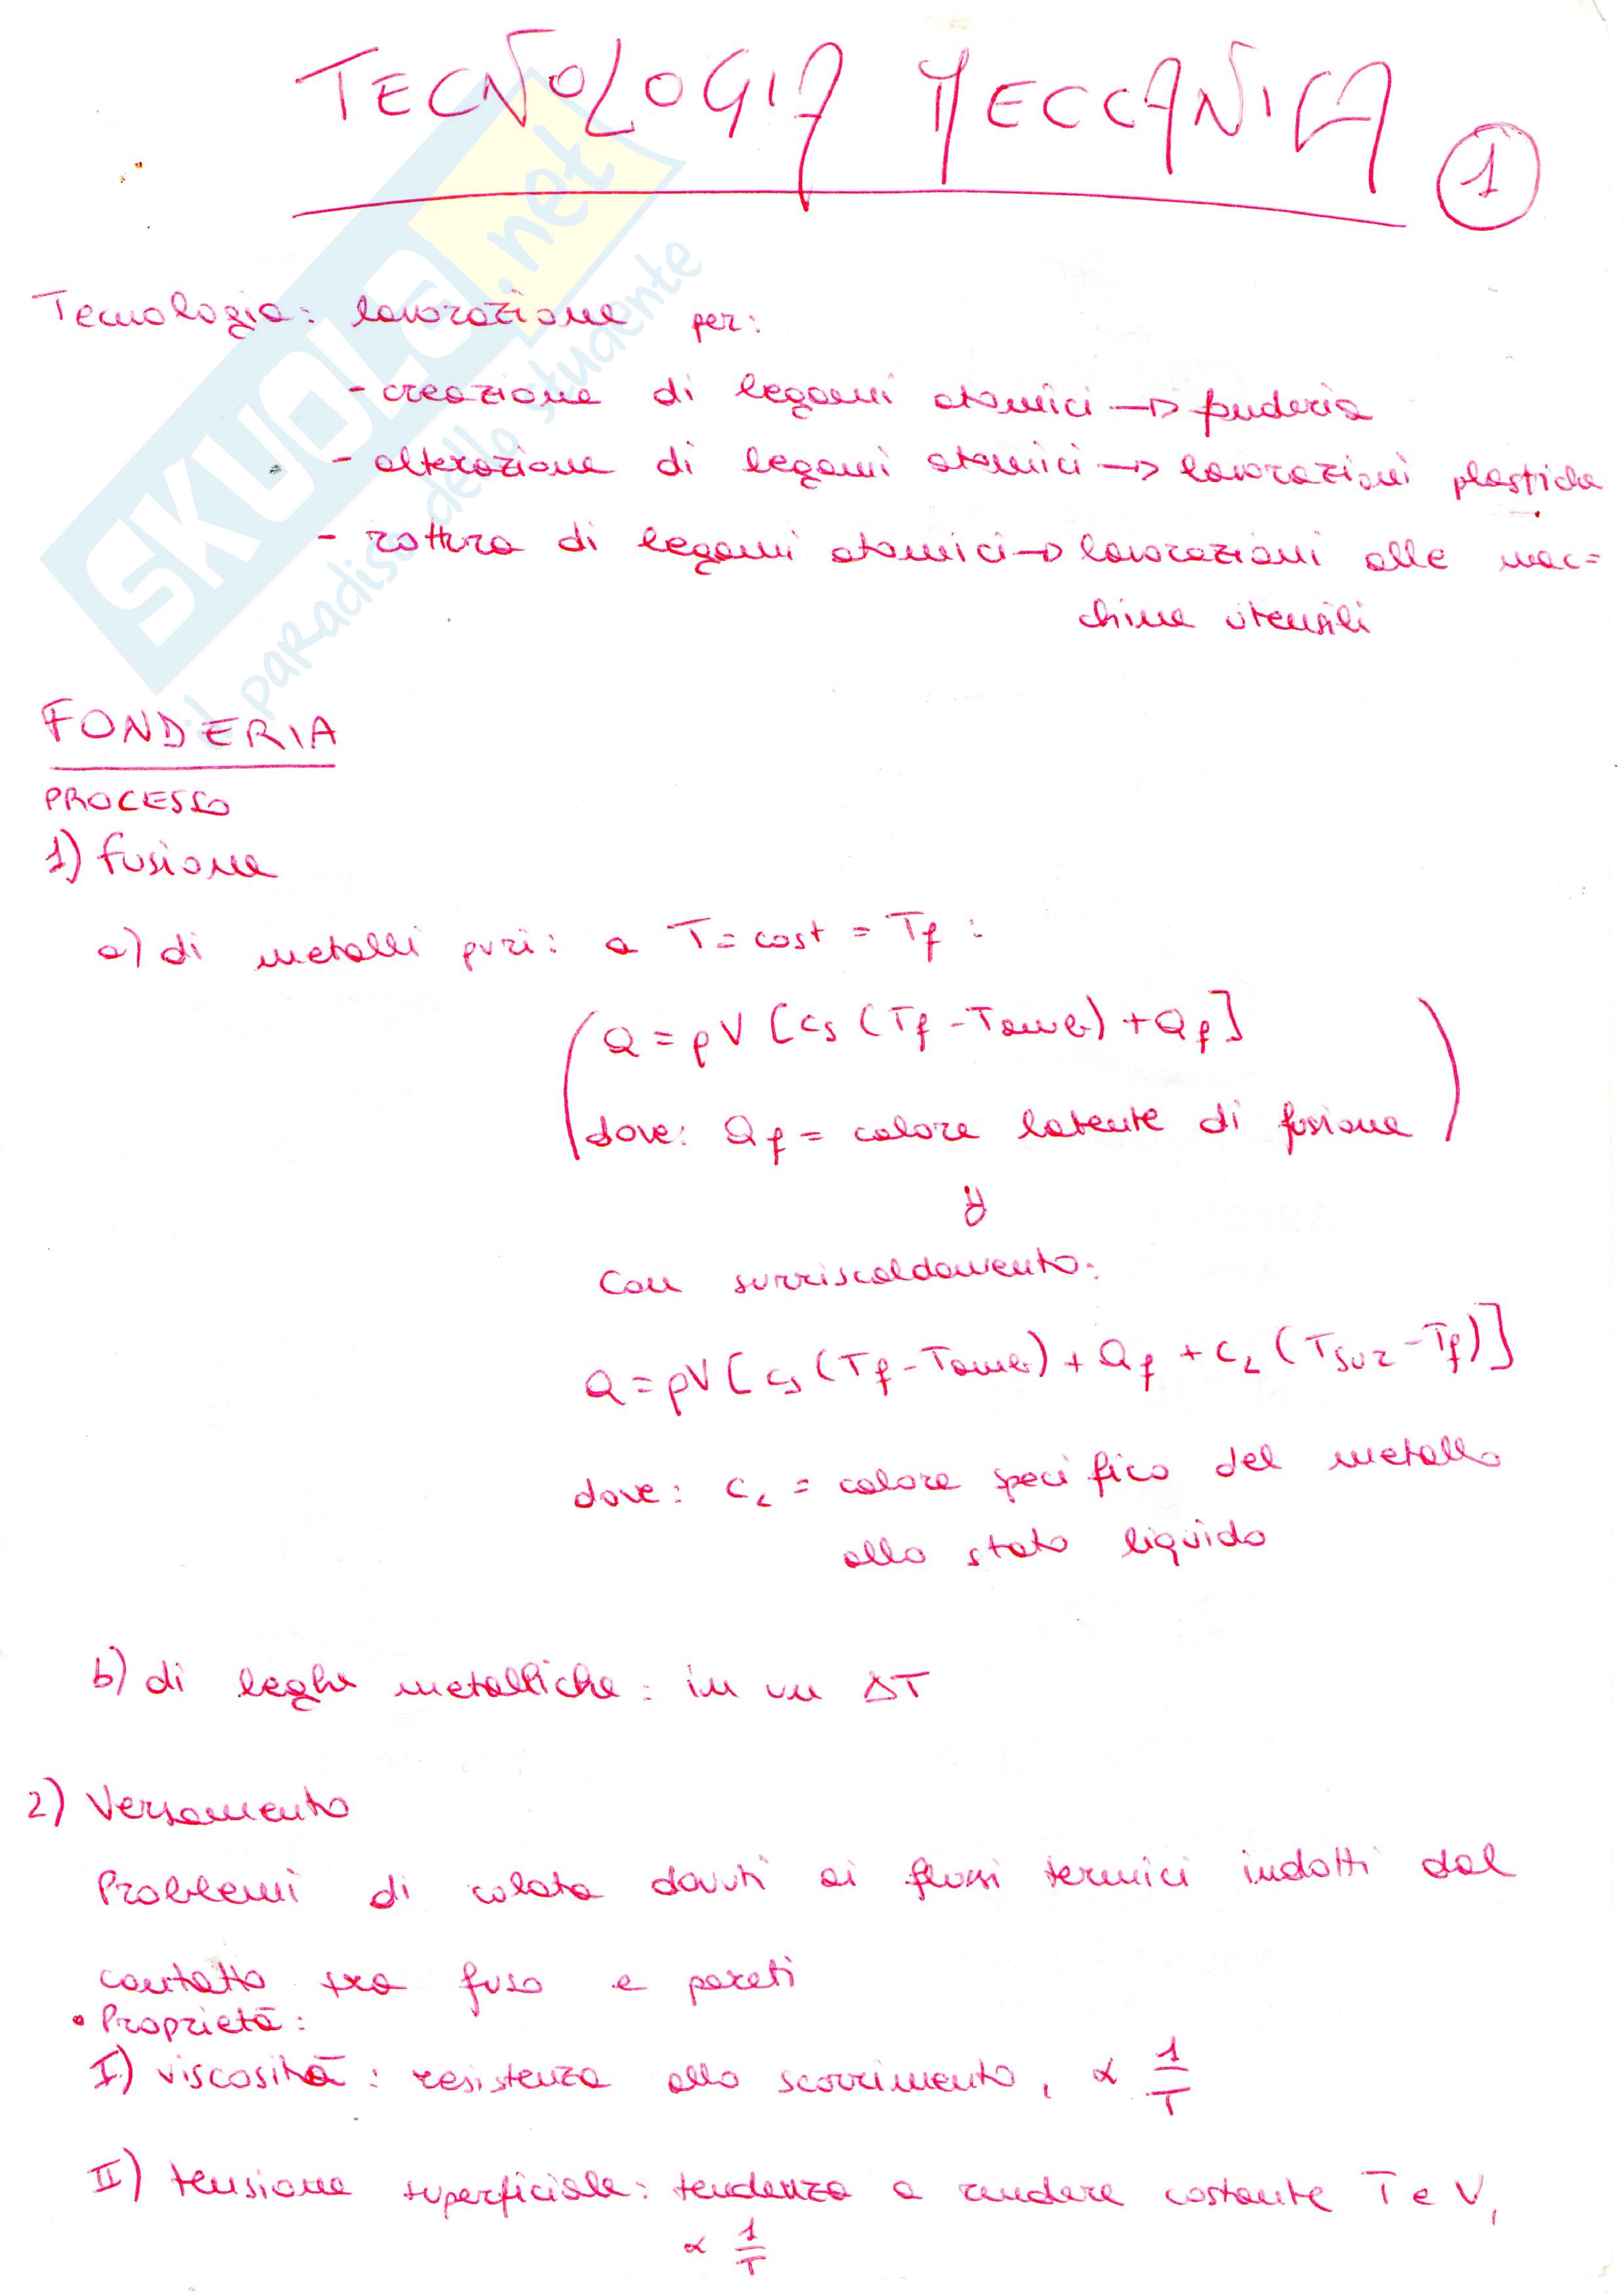 TECNOLOGIA MECCANICA 1
SKUOLA.net
il paradiso dello studente
Tecnologia: lavorazione per:
- creazione di legami atomici → fonderia
- alterazione di legami atomici → lavorazioni plastiche
- rottura di legami atomici → lavorazioni alle mac=
chine utensili
FONDERIA
PROCESSO
1) fusione
a) di metalli puri: a T = cost = Tf :
Q = ρV [cs (Tf - Tamb) + Qf]
dove: Qf = calore latente di fusione
Con surriscaldamento:
Q = ρV [cs (Tf - Tamb) + Qf + cL (Tsur - Tf)]
dove: cL = calore specifico del metallo
allo stato liquido
b) di leghe metalliche: in un ΔT
2) Versamento
Problemi di colata dovuti ai flussi termici indotti dal
contatto tra fuso e pareti
• Proprietà:
I) viscosità: resistenza allo scorrimento, ∝ 1/T
II) tensione superficiale: tendenza a rendere costante T e V,
∝ 1/T